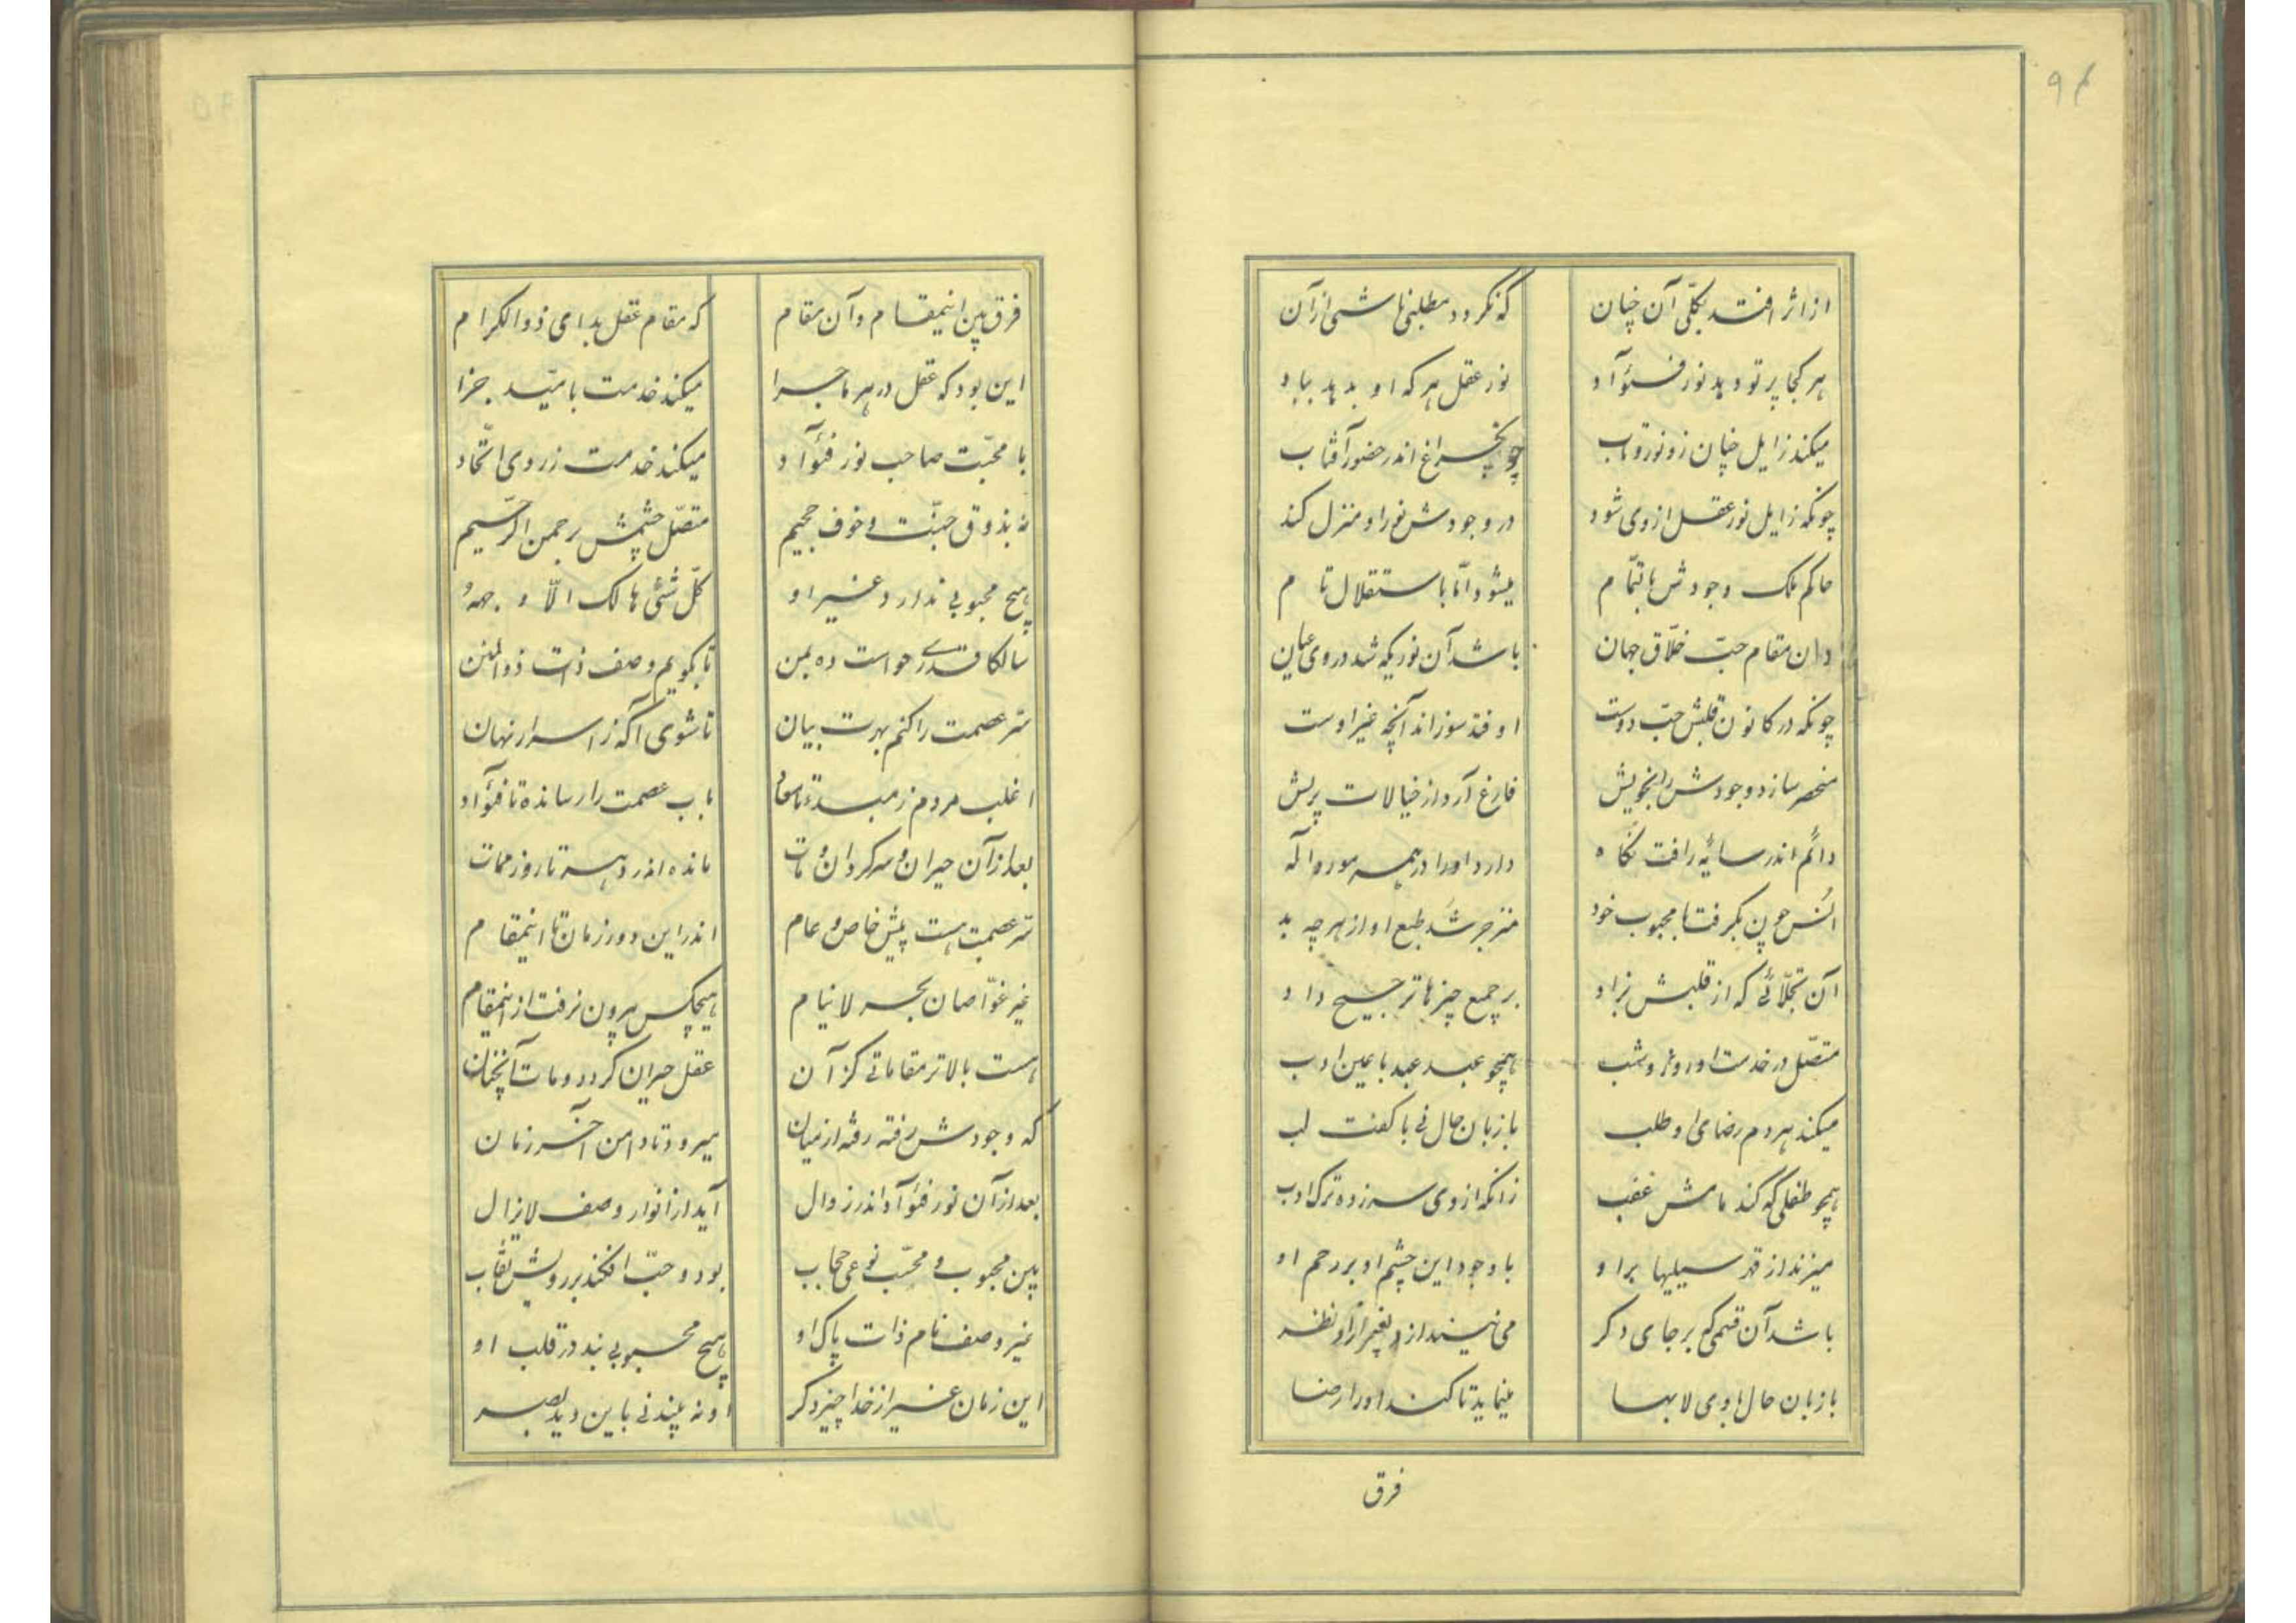 ۹۴
از اثر افتد بکلّی آن چنان که نکردد مطلبی ناشی از آن
هر کجا پرتو دهد نور فئوآد نور عقل هر که او بدهد بباد
میکند زایل چنان زو نور و تاب چون چراغ اندر حضور آفتاب
چونکه زایل نور عقل از وی شود در وجودش نور او منزل کند
حاکم ملک وجودش بالتّمام میشود امّا باستقلال تام
دان مقام حبّ خلّاق جهان باشد آن نوریکه شد در وی عیان
چونکه در کانون قلبش حبّ دوست اوفتد سوزاند آنچه غیر اوست
منحصر سازد وجودش را بخویش فارغ آرد از خیالات پریش
دائم اندر سایهٔ رافت نگاه دارد او را در همه مورو اله
انس چون بکرفت با محبوب خود منزجر شد طبع او از هر چه بد
آن تجلّائی که از قلبش بزاد بر جمیع چیزها ترجیح داد
متصّل در خدمت او روز و شب همچو عبد عبد با عین ادب
میکند هر دم رضای او طلب با زبان حال نی با کفت لب
همچو طفلی که کند مامش غضب زانکه از وی سر زده ترک ادب
میزند از قهر سیلیها برا و با وجود این چشم او بر رحم او
باشد آن قسمی که بر جای دکر می نیندازد بغیر از او نظر
با زبان حال با وی لابها مینماید تا کند او را رضا
فرق
فرق بین اینمقام و آن مقام که مقام عقل بد ای ذوالکرام
این بود که عقل در هر ماجرا میکند خدمت بامیّد جزا
با محبّت صاحب نور فئوآد میکند خدمت ز روی اتّحاد
نه بذوق جنّت و خوف جحیم متصّل چشمش برحمن الرّحیم
هیچ محبوبی ندارد غیر او کلّ شئی هالک الّا وجهه
سالکا قدری حواست ده بمن تا بکویم وصف ذات ذوالمنن
سّر عصمت را کنم بهرت بیان تا شوی آکه ز اسرار نهان
اغلب مردم ز مبدء تا معاد باب عصمت را رسانده تا فئوآد
بعد از آن حیران و سرکردان و مات مانده اندر دهسته تا روز ممات
سّر عصمت هست پیش خاص و عام اندر این دور زمان تا اینمقام
غیر غوّاصان بحر لاینام هیچکس بیرون نرفت از اینمقام
هست بالاتر مقاماتی کز آن عقل حیران کردد و مات آنچنان
که وجودش رفته رفته از میان میرود تا دامن آخر زمان
بعد از آن نور فئوآد اندر زوال آید از انوار وصف لایزال
بین محبوب و محبّ نوعی حجاب بود و حبّ افکند بر رویش نقاب
غیر وصف نام ذات پاک او هیچ محبوبی نبد در قلب او
این زمان غیر از خدا چیز دکر او نه بیند نی باین دید بصر